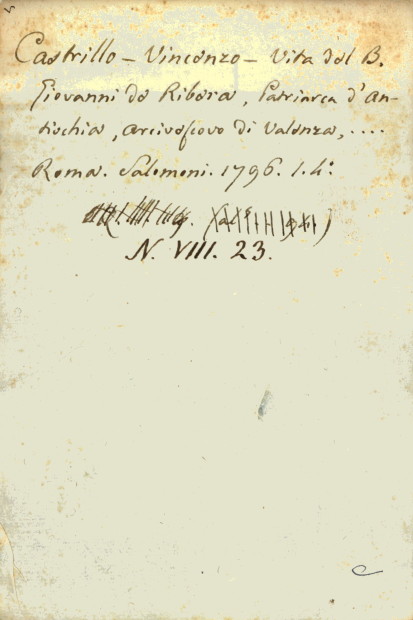 Castrillo - Vincenzo - Vita del B.
Giovanni de Ribera, Patriarca d'An-
tiochia, arcivescovo di Valenza, ....
Roma. Salomoni. 1796. 1. 4°.
N. VIII. 23.